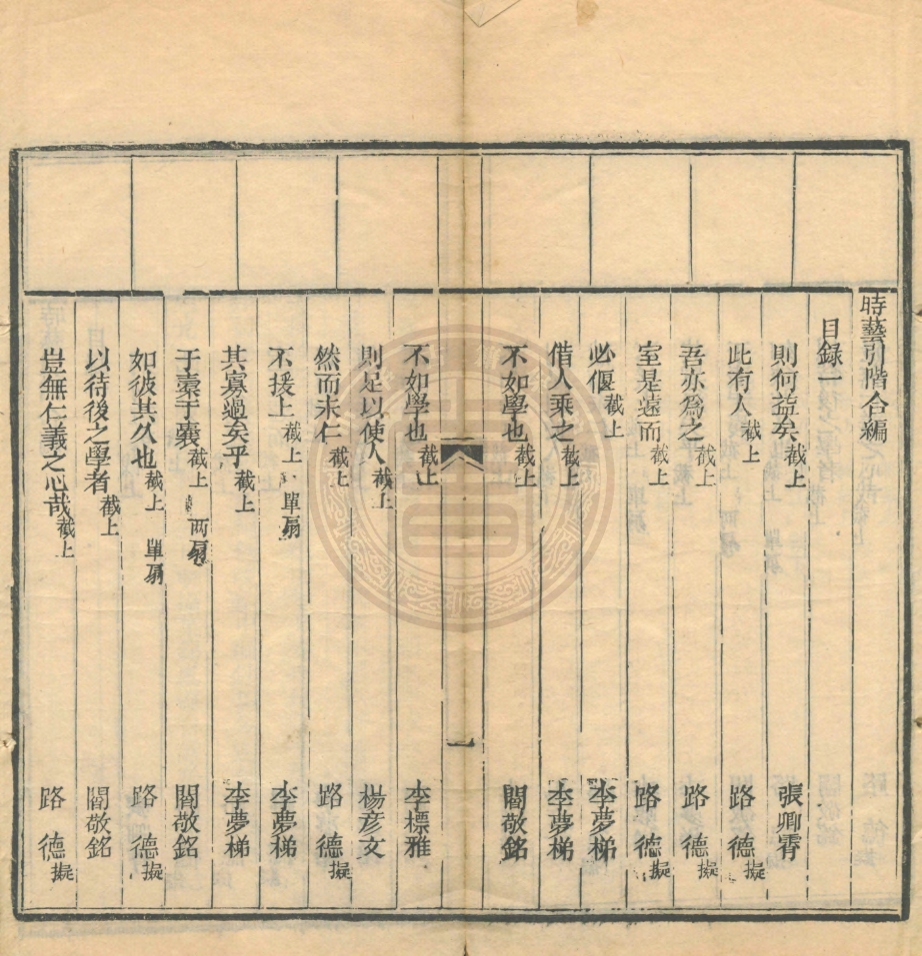 時藝引階合編
目錄一
則何益矣截上 張卿霄
此有人截上 路德擬
吾亦爲之截上 路德擬
室是遠而截上 路德擬
必偃截上 李夢梯
借人乘之截上 李夢梯
不如學也截上 閻敬銘
一
不如學也截上 李標雅
則足以使人截上 楊彦文
然而未仁截上 路德擬
不援上截上單扇 李夢梯
其寡過矣乎截上 李夢梯
于橐于囊截上兩扇 閻敬銘
如彼其久也截上單扇 路德擬
以待後之學者截上 閻敬銘
豈無仁義之心哉截上 路德擬